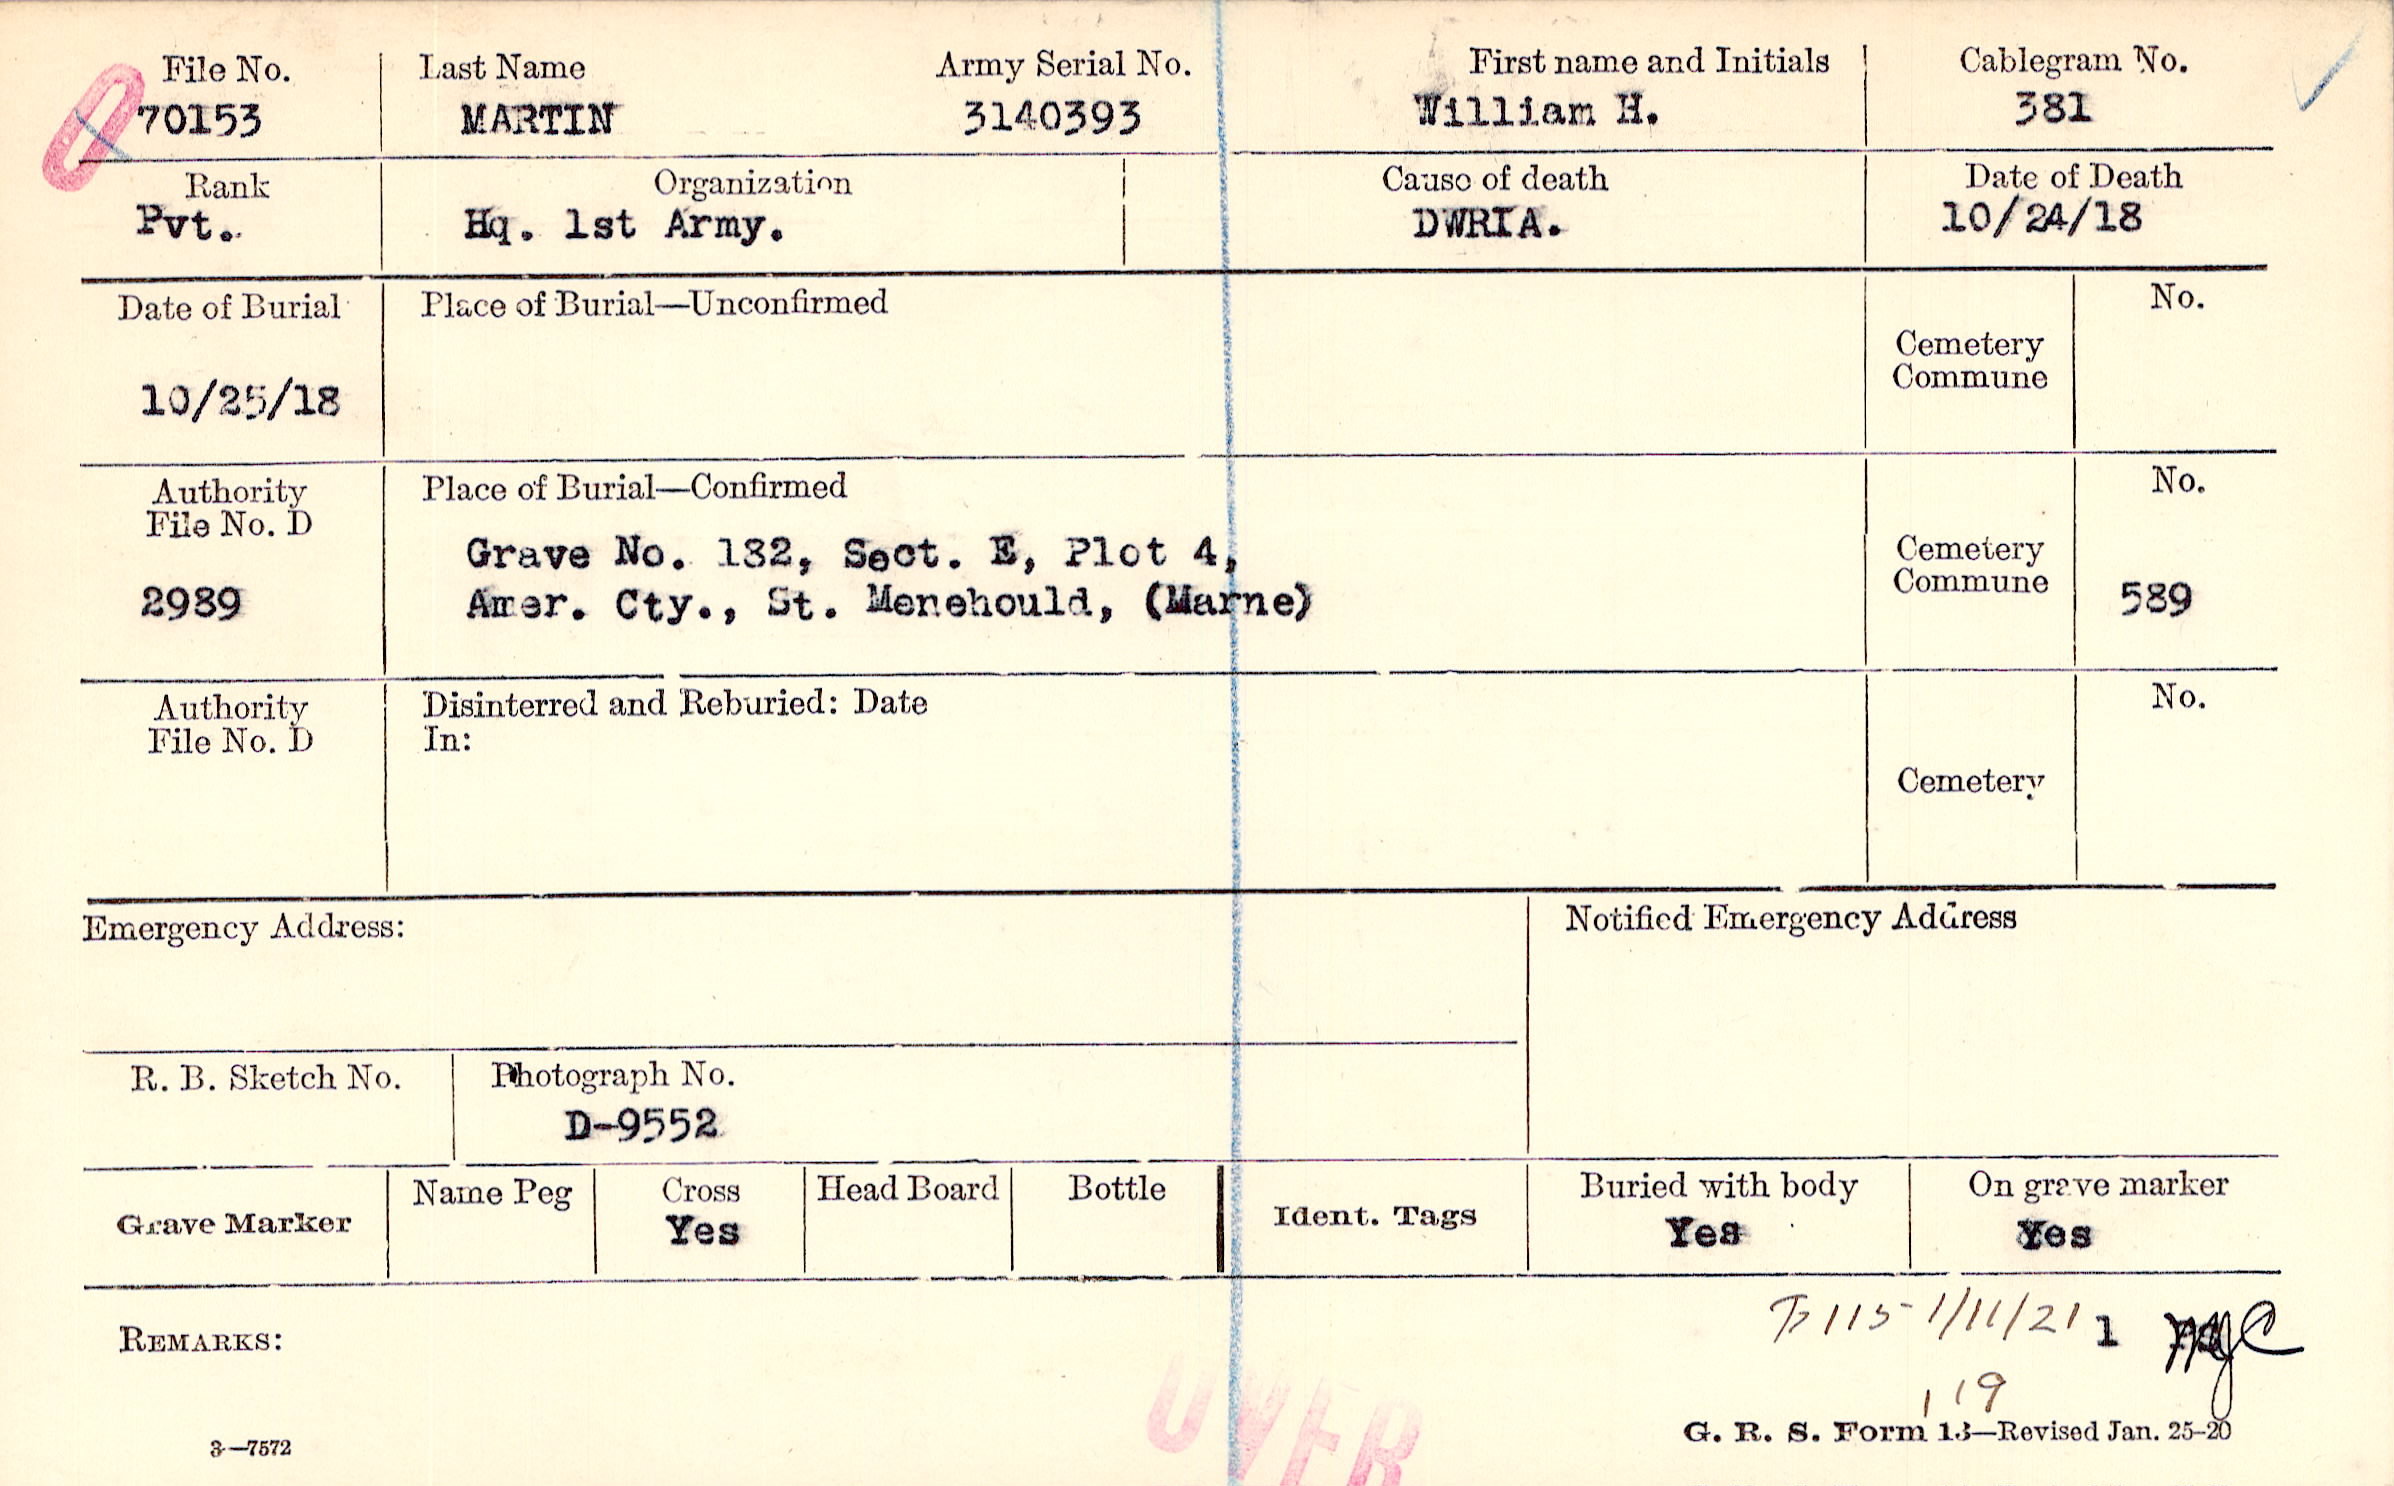 File No. Last Name Army Serial No. First name and Initials Cablegram No.
70153 MARTIN 3140393 William H. 381
Rank Organization Cause of death Date of Death
Pvt. Hq. 1st Army. DWRIA. 10/24/18
Date of Burial Place of Burial—Unconfirmed No.
Cemetery
Commune
10/25/18
Authority Place of Burial—Confirmed No.
File No. D
Grave No. 132, Sect. E, Plot 4, Cemetery
2989 Amer. Cty., St. Menehould, (Marne) Commune 589
Authority Disinterred and Reburied: Date No.
File No. D In:
Cemetery
Emergency Address: Notified Emergency Address
R. B. Sketch No. Photograph No.
D-9552
Grave Marker Name Peg Cross Head Board Bottle Ident. Tags Buried with body On grave marker
Yes Yes Yes
115 1/11/21 1
REMARKS:
119
OVER
G. R. S. Form 13—Revised Jan. 25-20
3—7572